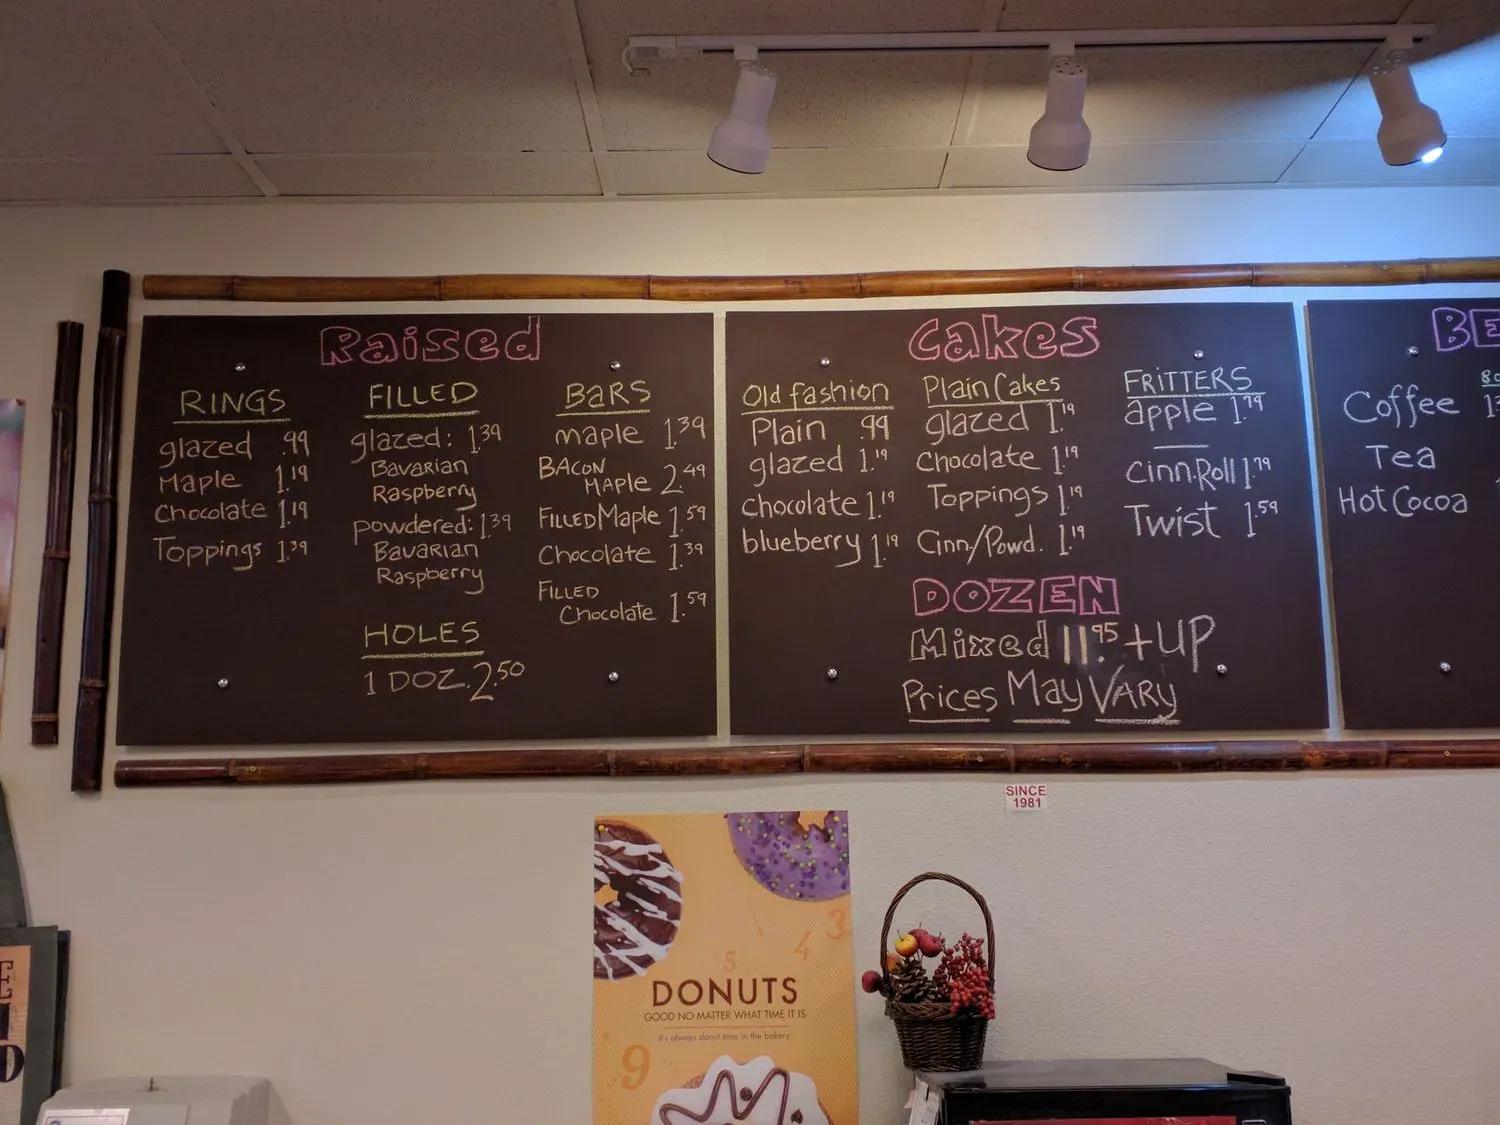 Raised
RINGS
glazed .99
Maple 1.19
Chocolate 1.19
Toppings 1.39
FILLED
glazed: 1.39
BavaRian
Raspberry
powdered: 1.39
BavaRian
Raspberry
HOLES
1 DOZ. 2.50
BaRS
maple 1.39
BACON
MAPLE 2.49
FILLED Maple 1.59
Chocolate 1.39
FILLED
Chocolate 1.59
Cakes
Old fashion
Plain .99
glazed 1.19
chocolate 1.19
blueberry 1.19
Plain Cakes
glazed 1.19
Chocolate 1.19
Toppings 1.19
Cinn./Powd. 1.19
FRiTTERS
apple 1.79
Cinn.Roll 1.79
Twist 1.59
DOZEN
Mixed 11.95 + UP
Prices May VARy
Coffee
Tea
Hot Cocoa
SINCE
1981
3
4
5
DONUTS
GOOD NO MATTER WHAT TIME IT IS
It's always donut time in the bakery
9